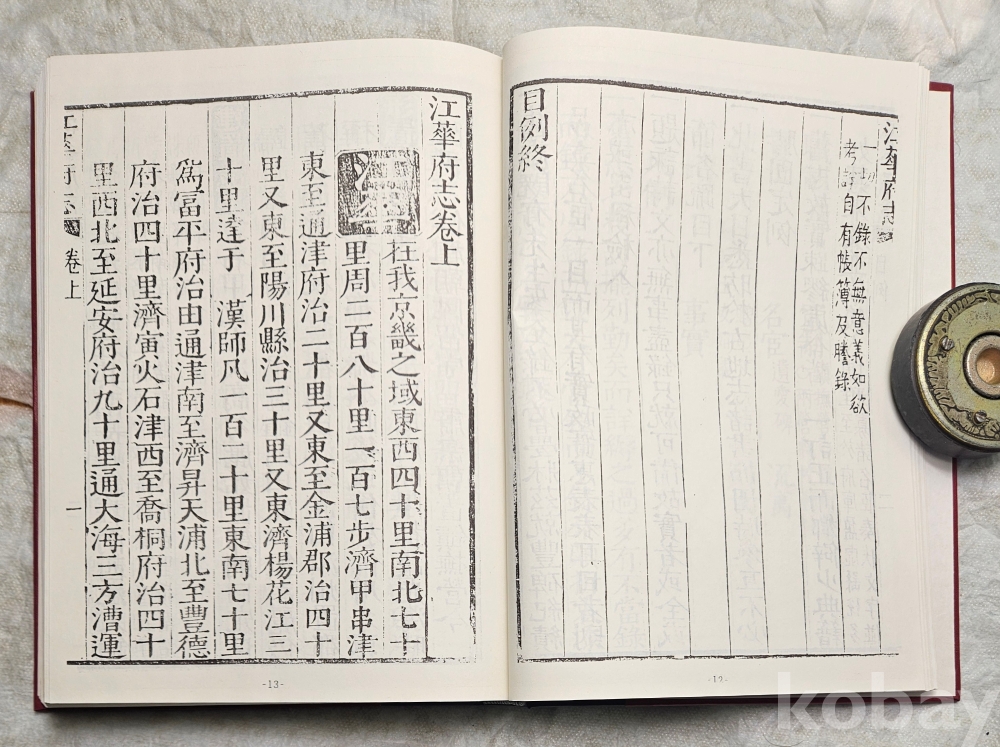 江華府志
不錄不無意義如欲
考 自有帳簿及謄錄
目例終
江華府志卷上
在我京畿之域東西四十里南北七十
里周二百八十里一百七步濟甲串津
東至通津府治二十里又東至金浦郡治四十
里又東至陽川縣治三十里又東濟楊花江三
十里達于 漢師凡一百二十里東南七十里
爲富平府治由通津南至濟昇天浦北至豐德
府治四十里濟寅火石津西至喬桐府治四十
里西北至延安府治九十里通大海三方漕運
江華府志 卷上 一
-13-
-12-
kobay